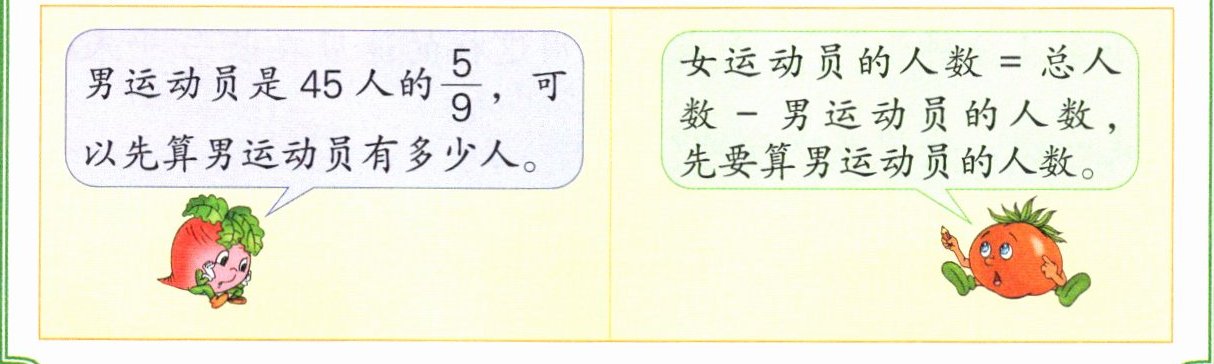 男运动员是 45 人的 5/9，可
以先算男运动员有多少人。
女运动员的人数 = 总人
数 - 男运动员的人数，
先要算男运动员的人数。